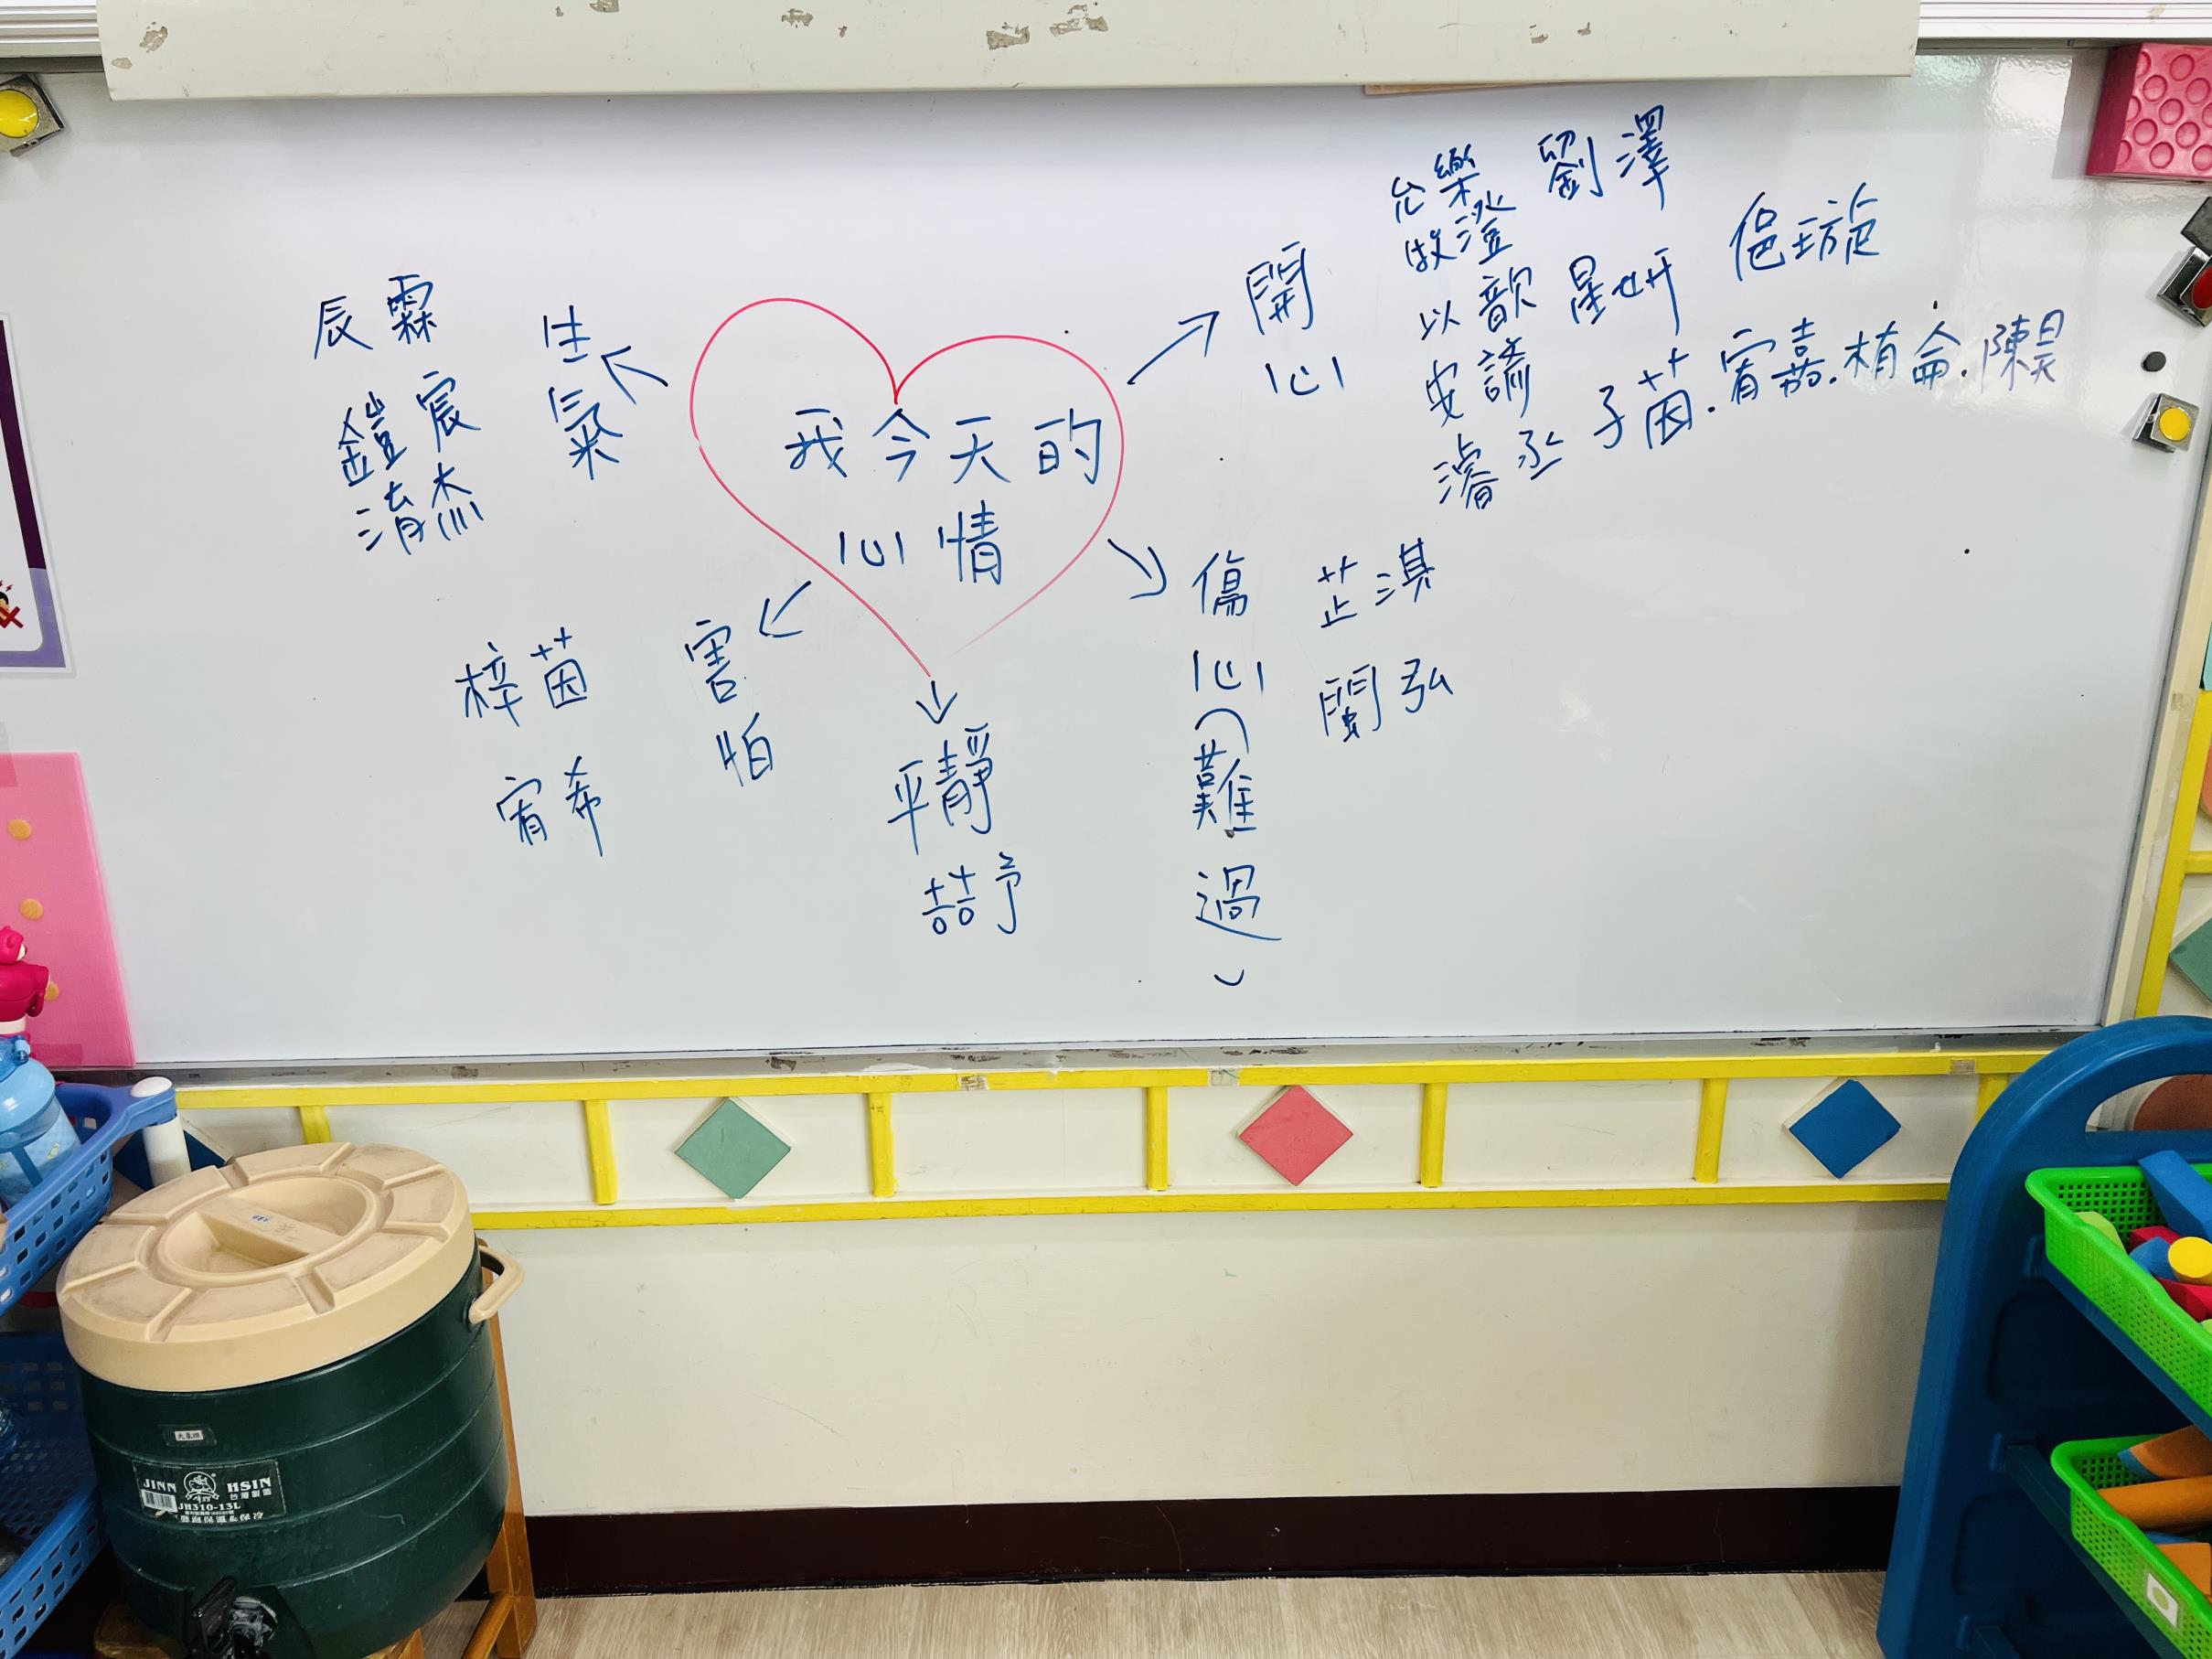 我今天的
心情
開心
允樂 劉澤
牧澄
以歆 星妍 侹璇
安諭
濬丞 子茵.宥嘉.植侖.陳昊
傷心(難過)
芷淇
閩弘
平靜
喆予
害怕
梓茵
宥希
生氣
辰霖
鎧宸
淯杰
JINN HSIN
台灣製造
JH310-13L